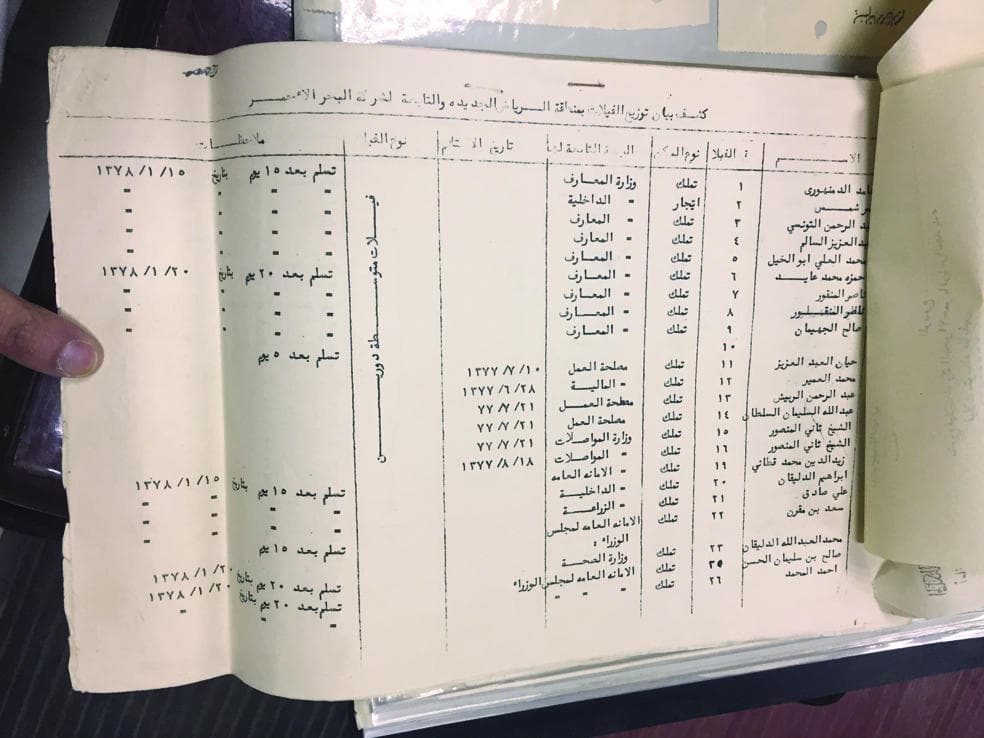 كشف بيان توزيع الفيلات بمنطقة الرياض الجديده والتابعة لشركة البحر الاحمر
الاســم نمرة الفيلا نوع السكن الجهة التابعة لها تاريخ الاستلام نوع الفيلا ملاحظـــات
الدمنهورى ١ تملك وزارة المعارف تسلم بعد ١٥ يوم بتاريخ ١٣٧٨/١/١٥
شمس ٢ ايجار " الداخلية " " "
الرحمن التونسي ٣ تملك " المعارف " " "
العزيز السالم ٤ تملك " المعارف " " "
محمد العلي ابو الخيل ٥ تملك " المعارف
حمزه محمد عابد ٦ تملك " المعارف تسلم بعد ٢٠ يوم بتاريخ ١٣٧٨/١/٢٠
ناصر المنقور ٧ تملك " المعارف " " "
٨ تملك " المعارف " " "
صالح الجهيمان ٩ تملك " المعارف " " "
١٠
حيان العبد العزيز ١١ تملك مصلحة العمل ١٣٧٧/٧/١٠ تسلم بعد ٥ يوم
محمد العمير ١٢ تملك " المالية ١٣٧٧/٦/٢٨
عبد الرحمن الربيش ١٣ تملك مصلحة العمل ٧٧/٧/٢١
عبدالله السليمان السلطان ١٤ تملك مصلحة العمل ٧٧/٧/٢١
الشيخ ثاني المنصور ١٥ تملك وزارة المواصلات ٧٧/٧/٢١
الشيخ ثاني المنصور ١٦ تملك " المواصلات ١٣٧٧/٨/١٨
زيد الدين محمد قطاني ١٩ تملك " الامانه العامه
ابراهيم الدليقان ٢٠ تملك " الداخلية تسلم بعد ١٥ يوم بتاريخ ١٣٧٨/١/١٥
علي صادق ٢١ تملك " الزراعـة " " "
سعد بن مقرن ٢٢ تملك الامانه العامه لمجلس " " "
الوزراء :
محمد العبدالله الدليقان ٢٣ تملك وزارة الصحـة تسلم بعد ١٥ يوم
صالح بن سليمان الحسن ٢٥ تملك الامانه العامه لمجلس الوزراء تسلم بعد ٢٠ يوم بتاريخ ١٣٧٨/١/٢٠
احمد المحمد ٢٦ تملك " " " تسلم بعد ٢٠ يوم بتاريخ ١٣٧٨/١/٢٠
فيــلات متوســطة دوريــن